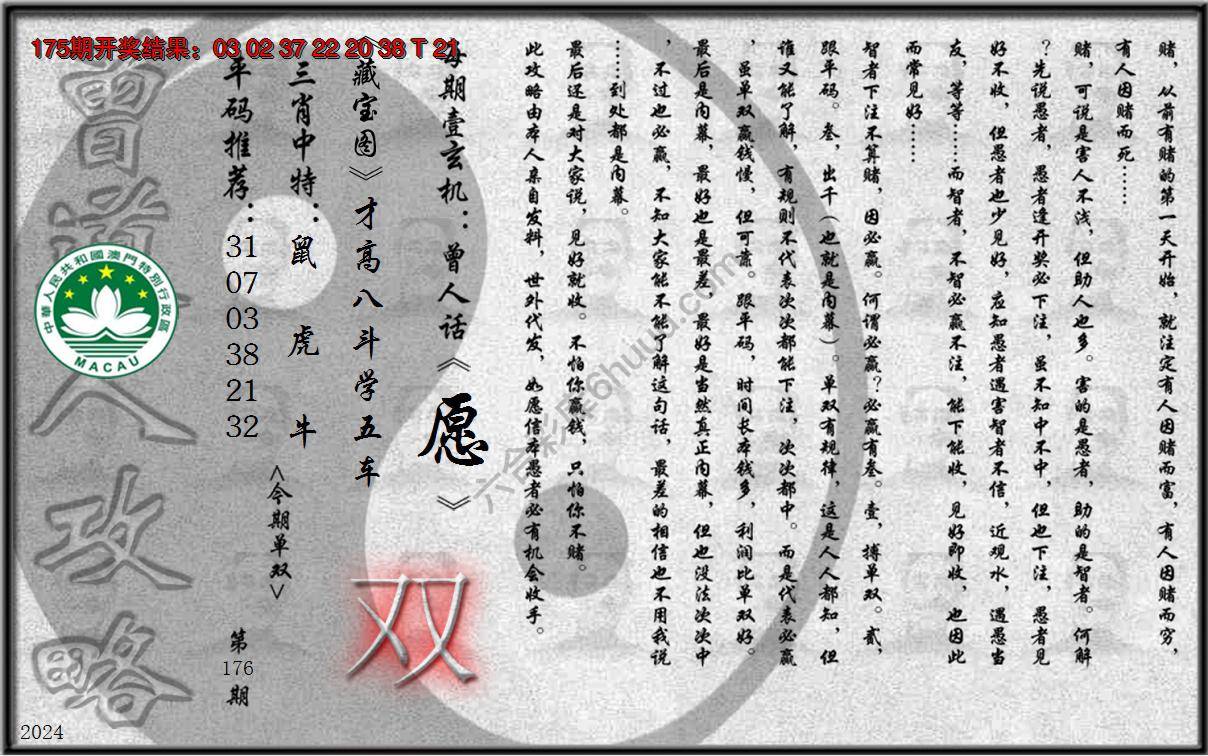 175期开奖结果：03 02 37 22 20 38 T 21
赌，从前有赌的第一天开始，就注定有人因赌而富，有人因赌而穷，
有人因赌而死……
赌，可说是害人不浅，但助人也多。害的是愚者，助的是智者。何解
？先说愚者，愚者逢开奖必下注，虽不知中不中，但也下注，愚者见
好不收，但愚者也少见好，应知愚者遇害智者不信，近观水，遇愚当
友，等等……而智者，不智必赢不注，能下能收，见好即收，也因此
而常见好……
智者下注不算赌，因必赢。何谓必赢？必赢有叁。壹，搏单双。贰，
跟平码。叁，出千（也就是内幕）。单双有规律，这是人人都知，但
谁又能了解，有规则不代表次次都能下注，次次都中。而是代表必赢
，虽单双赢钱慢，但可靠。跟平码，时间长本钱多，利润比单双好。
最后是内幕，最好也是最差，最好是当然真正内幕，但也没法次次中
，不过也必赢，不知大家能不能了解这句话，最差的相信也不用我说
……到处都是内幕。
最后还是对大家说，见好就收。不怕你赢钱，只怕你不赌。
此攻略由本人亲自发料，世外代发，如愿信本愚者必有机会收手。
每期壹玄机：曾人话《愿》
《藏宝图》才高八斗学五车
三肖中特：鼠 虎 牛
平码推荐：31 07 03 38 21 32
<今期单双>
双
第176期
曾道人攻略
中華人民共和國澳門特別行政區
MACAU
2024